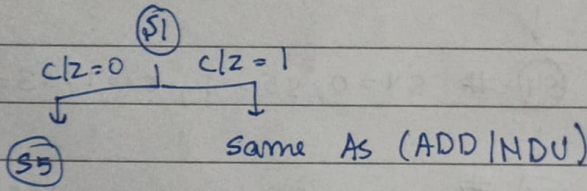 S1
C/Z=0 C/Z=1
S5 Same As (ADD/NDU)